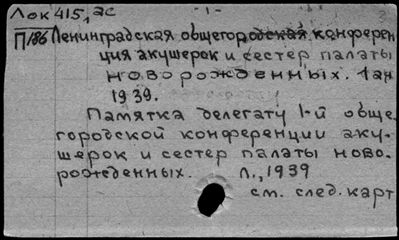 Лок 415, 2с -1-
П/186 Ленинградская общегородская конферен
ция акушерок и сестер палаты
новорожденных. 1 ян
1939.
Памятка делегату 1-й обще-
городской конференции аку-
шерок и сестер палаты ново-
рожденных. Л., 1939
см. след. карт